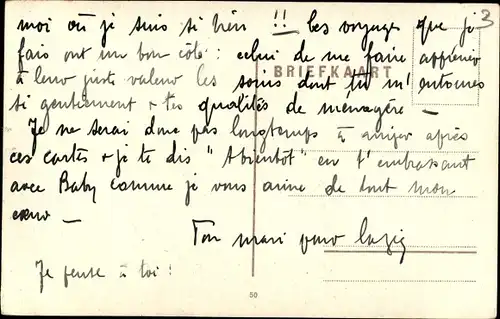 3
moi où je suis si bien !! Les voyages que je
fais ont un bon côté : celui de me faire apprécier
à leur juste valeur les soins dont tu m'entoures
BRIEFKAART
si gentiment & tes qualités de ménagère —
Je ne serai donc pas longtemps à arriver après
ces cartes & je te dis "Abientôt" en t'embrassant
avec Baby comme je vous aime de tout mon
cœur —
Ton mari pour
Je pense à toi !
50